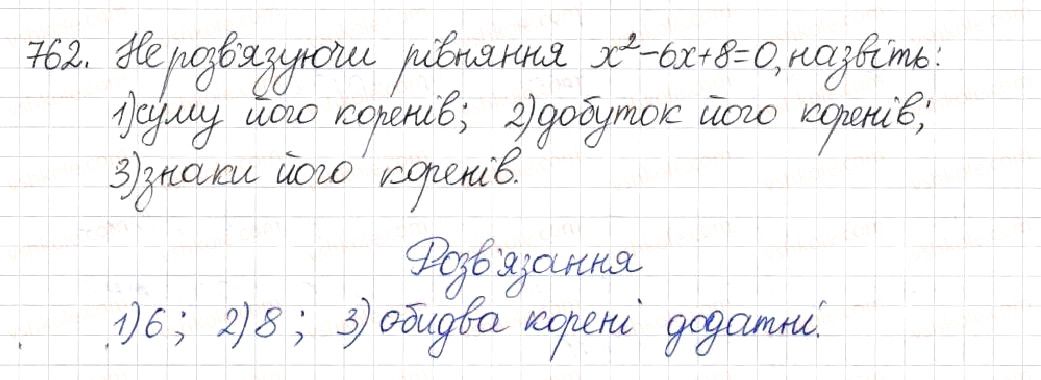 762. Не розв'язуючи рівняння x²-6x+8=0, назвіть:
1) суму його коренів; 2) добуток його коренів;
3) знаки його коренів.
Розв'язання
1) 6; 2) 8; 3) обидва корені додатні.